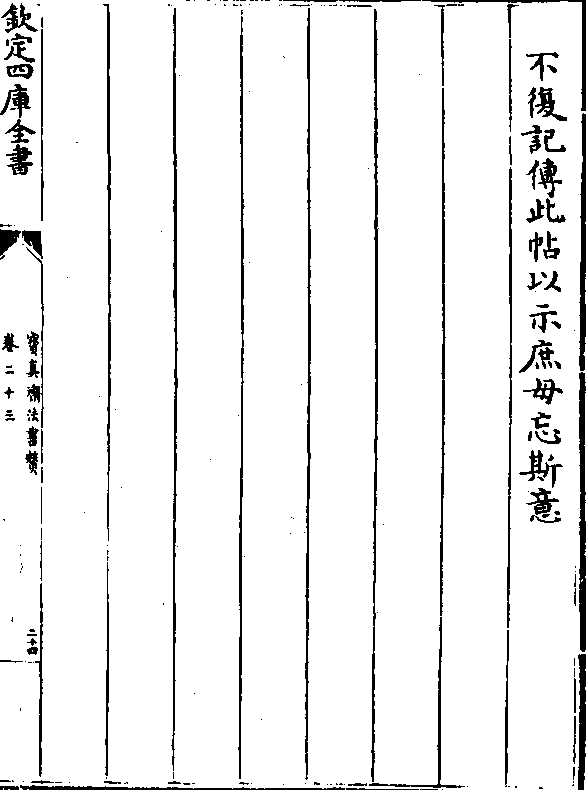 不復記傳此帖以示庶毋忘斯意
欽定四庫全書
寶真齋法書贊
卷二十三
二十四